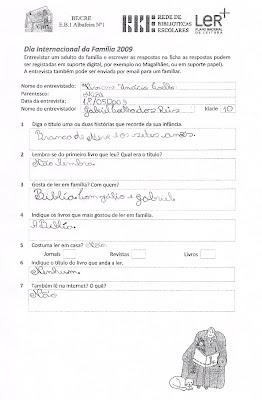 BE/CRE
E.B.1 Albufeira Nº1
REDE DE
BIBLIOTECAS
ESCOLARES
LER+
PLANO NACIONAL
DE LEITURA
Dia Internacional da Família 2009
Entrevistar um adulto da família e escrever as respostas na ficha as respostas podem
ser registadas em suporte digital, por exemplo no Magalhães, ou em suporte papel).
A entrevista também pode ser enviada por email para um familiar.
Nome do entrevistado:
Parentesco:
Data da entrevista:
Nome do entrevistador: Gabriel dos Reis Idade 10
1 Diga o título uma ou duas histórias que recorde da sua infância.
Branca de Neve e os sete anões.
2 Lembra-se do primeiro livro que leu? Qual era o título?
Não lembro.
3 Gosta de ler em família? Com quem?
Bíblia, Gonzálio e gabriel
4 Indique os livros que mais gostou de ler em família.
A Bíblia.
5 Costuma ler em casa? Não
Jornais Revistas Livros
6 Indique o título do livro que anda a ler.
Nenhum.
7 Também lê na Internet? O quê?
Não